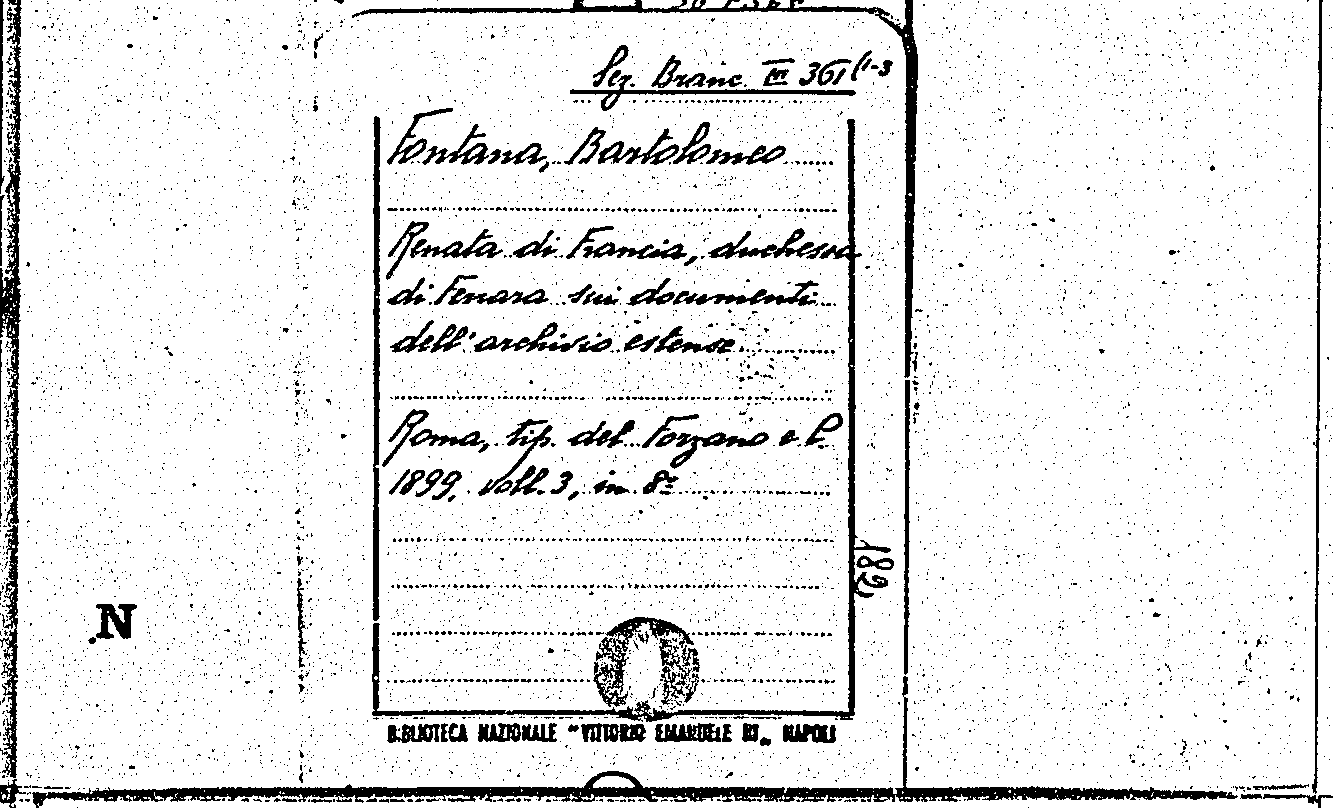 Sez. Branc. III 361 (1-3
Fontana, Bartolomeo
Renata di Francia, duchessa
di Ferrara sui documenti
dell'archivio estense.
Roma, tip. del Forzano e C.
1899, voll. 3, in 8º
182
N
BIBLIOTECA NAZIONALE "VITTORIO EMANUELE III„ NAPOLI